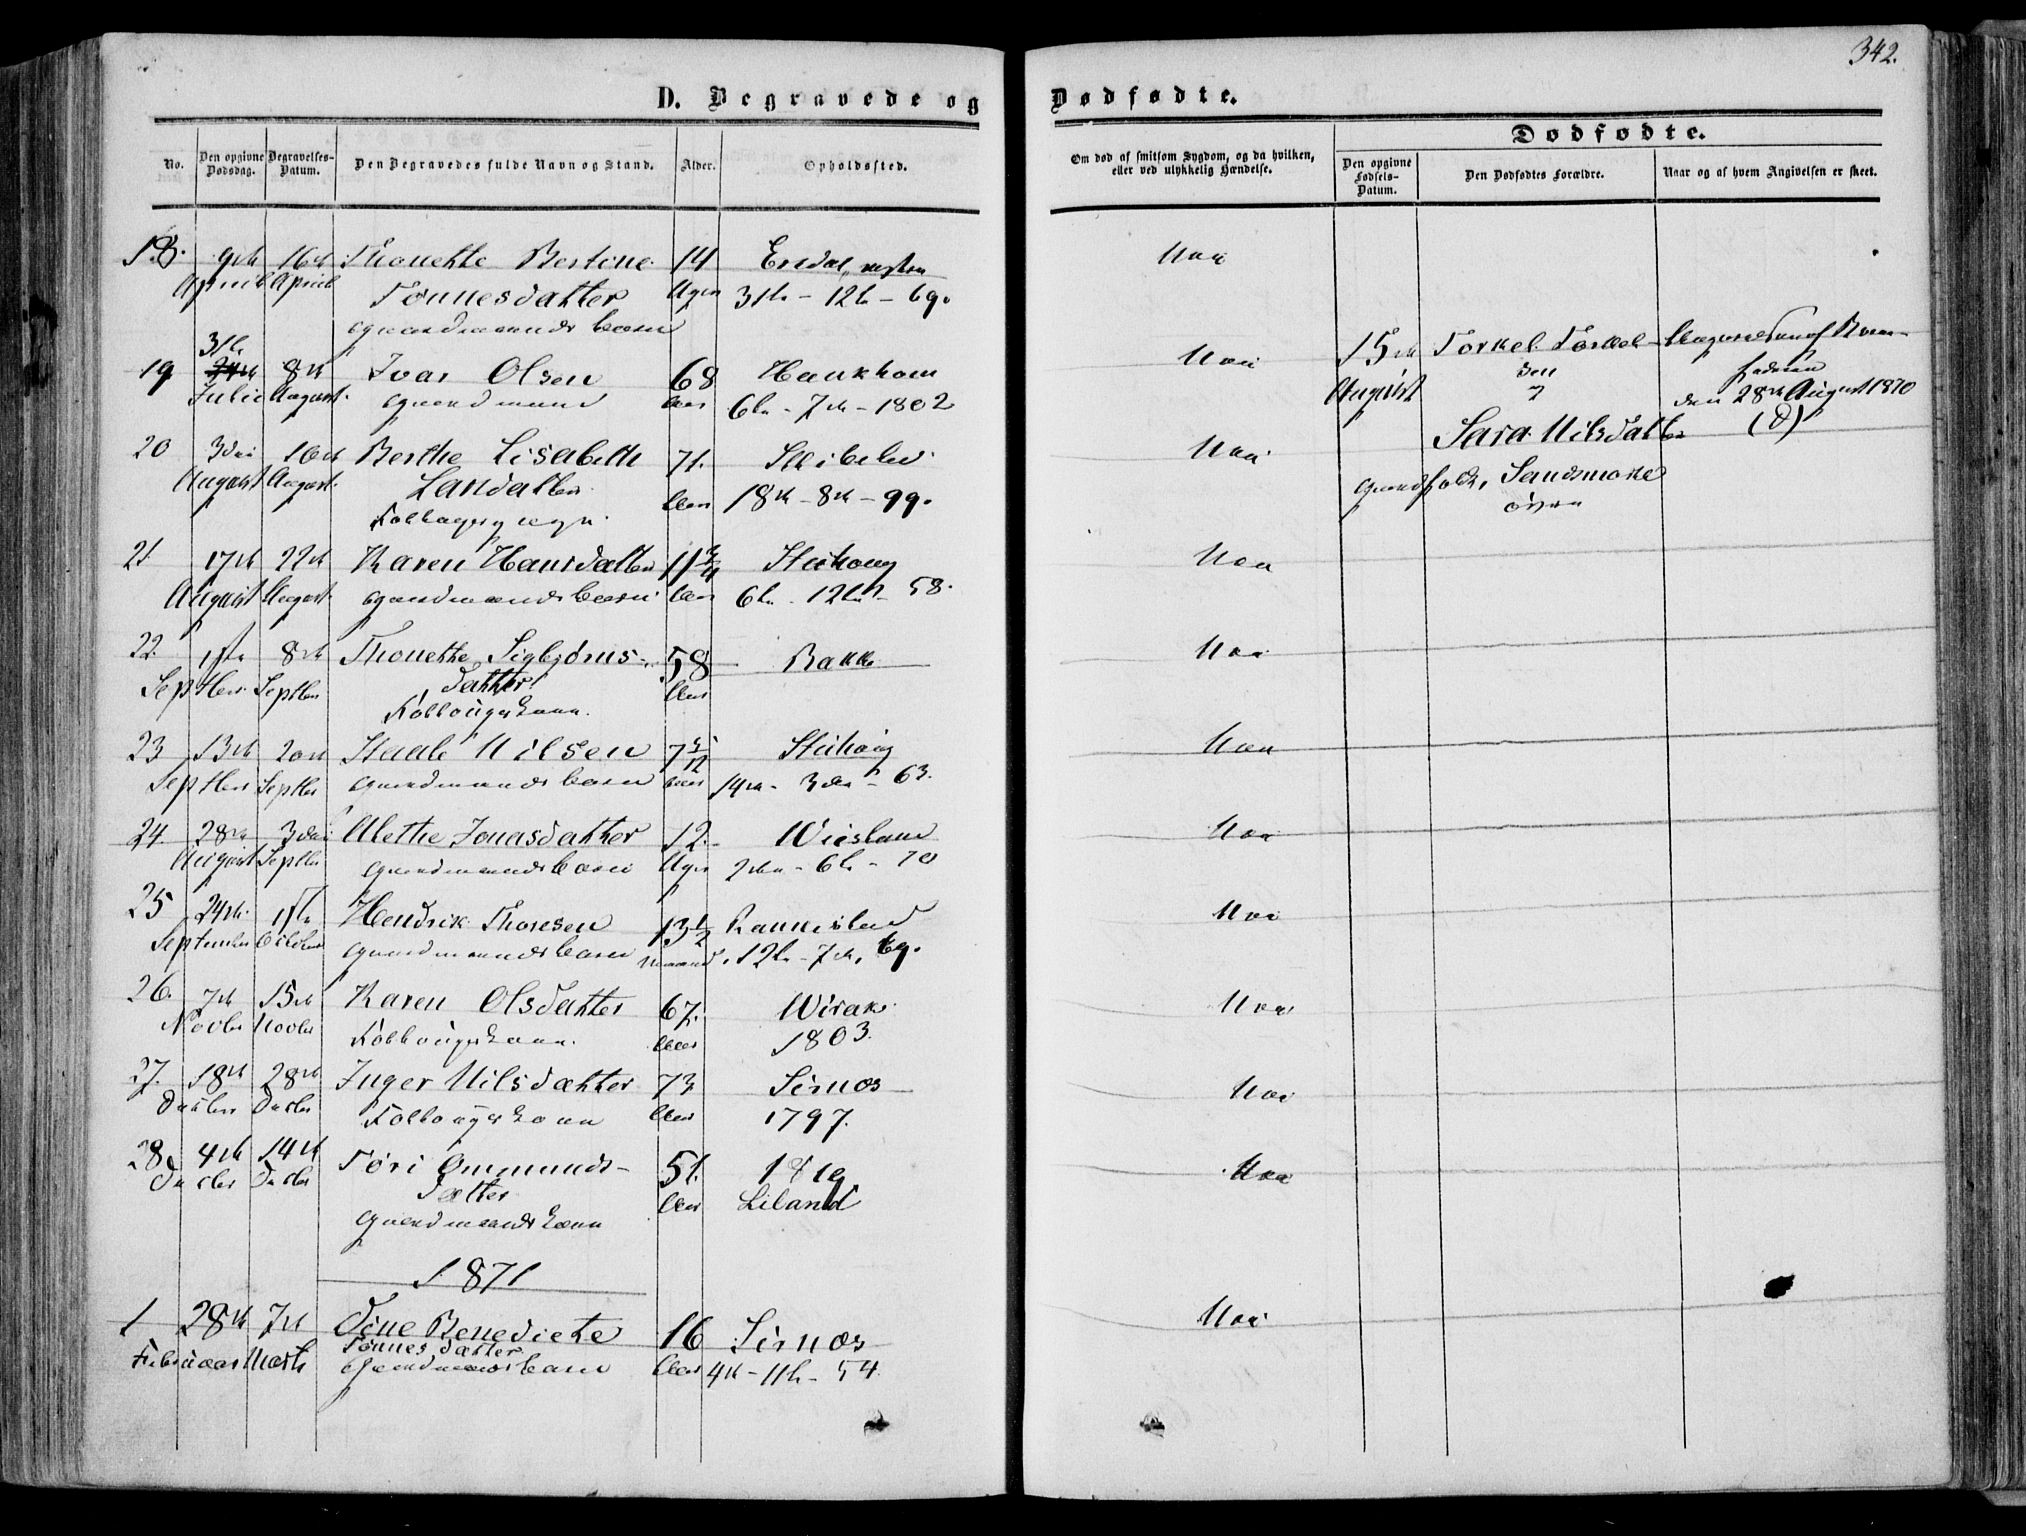 342.
D. Begravede og Dødfødte.
Dødfødte.
No.
Den opgivne Dødsdag.
Begravelses-Datum.
Den Begravedes fulde Navn og Stand.
Alder.
Opholdssted.
Om død af smitsom Sygdom, og da hvilken,
eller ved ulykkelig Hændelse.
Den opgivne Fødsels-Datum.
Den Dødfødtes Forældre.
Naar og af hvem Angivelsen er skeet.
18. 9de 16de Thonette Bertine 14 Nei
April April Tønnesdatter Uger 31te - 12te - 69.
Gaardmands Barn
31te
19 8de Ivar Olsen 68 Haukhom Nei
Juli August. Gaardmand Aar 6te - 7de - 1802
15de Torkel Torkel-
August sen
den 28de August 1870
Sara Nilsdatter (D)
Gaardfolk, Sandsmork
øvre
20 3die 10de Berthe Lisabeth 71. Nei
August August. Larsdatter Aar 18de - 8de - 99.
21 17de 22de Karen Hansdatter 11 3/4 Nei
August August. Gaardmands Barn Aar 6te - 12te - 58.
22. 1ste 8de Thonette Sigbjørns- 58 Bakke Nei
Septber Septber datter Aar
23 13de 20de Staale Nilsen 7 5/12 Nei
Septber Septber Gaardmands Barn Aar 14de - 3die - 63.
24. 28de 3die Alethe Jonasdatter 12. Nei
August Septbr Gaardmands Barn Uger 2den - 6te - 70
25 24de 1ste Hendrik Thorsen 13 1/2 Nei
September October Gaardmands Barn Maaned. 12te - 7de, 69.
26. 7de 15de Karen Olsdatter 67. Wirak Nei
Novbr Novbr Aar 1803.
27. 18de 28de Inger Nilsdatter 73 Sirnes Nei
Decbr Decbr Aar 1797.
28 4de 14de Tóri Ommunds- 51. 1819 Nei
Decbr Decbr datter Aar Liland
Gaardmands Kone
1871
1 28de 7de Tine Benedicte 16 Sirnes Nei
Februar Marts Tønnesdatter
Gaardmands Barn Aar 4de - 11te - 54.